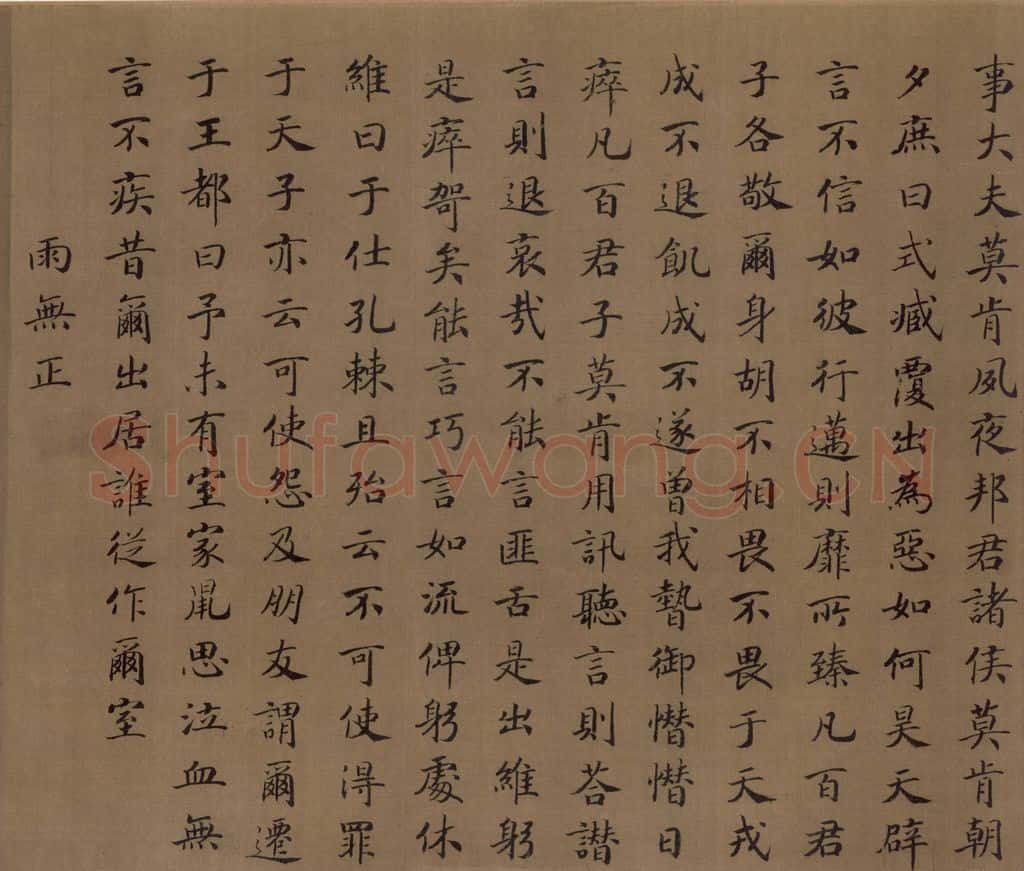 事大夫莫肯夙夜邦君諸侯莫肯朝
夕庶曰式臧覆出為惡如何昊天辟
言不信如彼行邁則靡所臻凡百君
子各敬爾身胡不相畏不畏于天戎
成不退飢成不遂曾我暬御憯憯日
瘁凡百君子莫肯用訊聽言則荅譖
言則退哀哉不能言匪舌是出維躬
是瘁哿矣能言巧言如流俾躬處休
維曰于仕孔棘且殆云不可使得罪
于天子亦云可使怨及朋友謂爾遷
于王都曰予未有室家鼠思泣血無
言不疾昔爾出居誰從作爾室
雨無正
Shufawang.CN